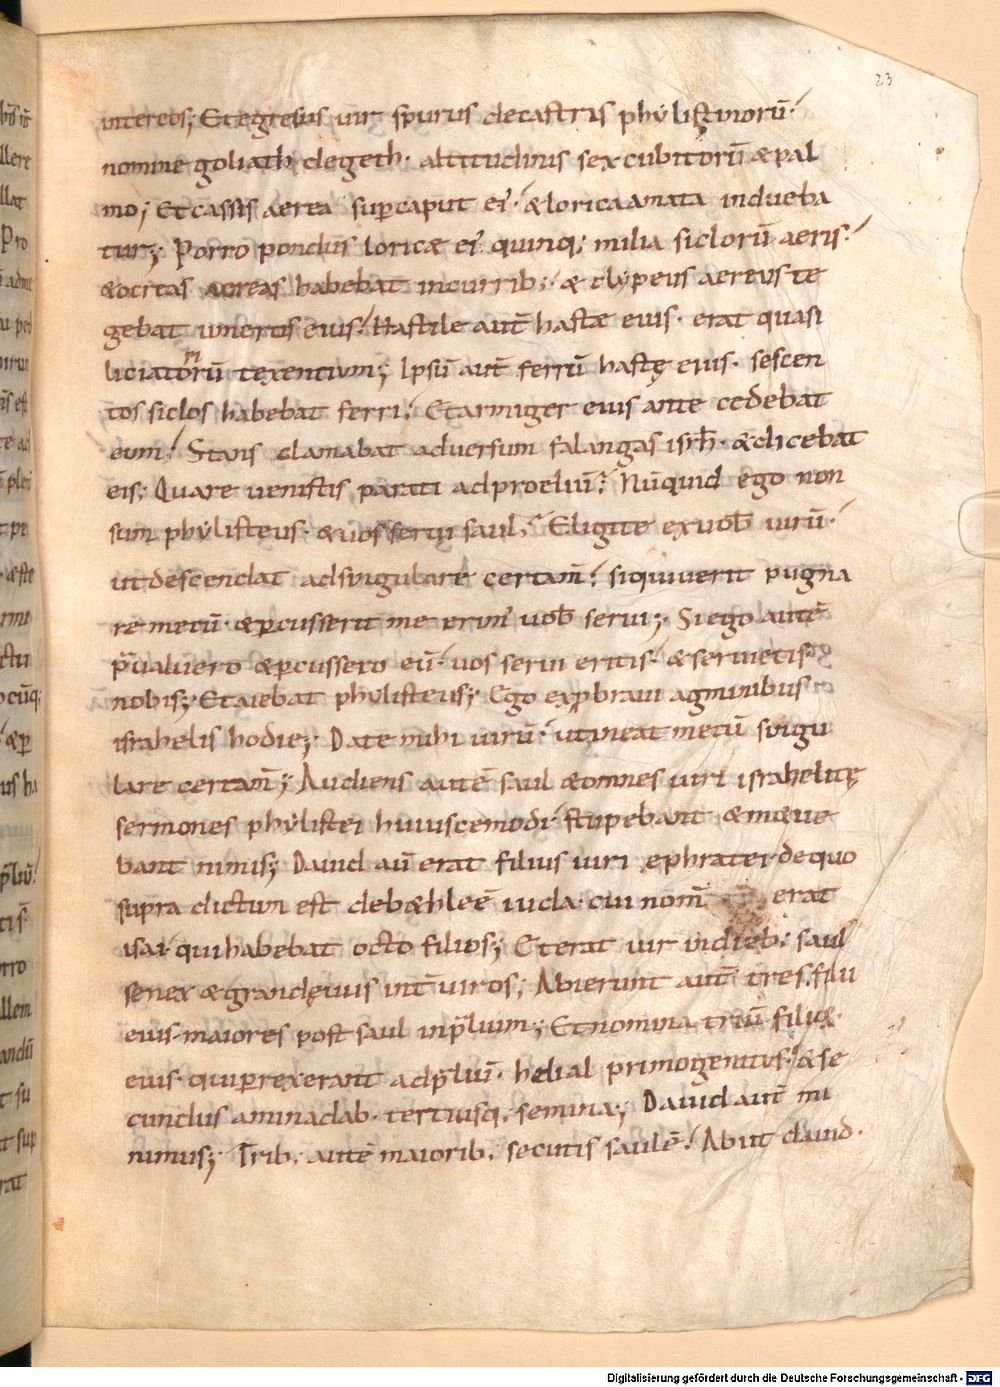 23
inter eos; Et egressus uir spurius decastris phylistinorū·
nomine goliath degeth· altitudinis sex cubitorū & pal
mo; Et cassis aerea sup̄ caput ei᾽· & lorica amata indueba
tur; Porro pondus loricæ ei᾽ quinq; milia siclorū aeris·
& ocreas aereas habebat incurrib;· & clypeus aereus te
gebat umeros eius· Hastile aut̄ hastæ eius· erat quasi
liciatoriū texentium; Ipsū aut̄ ferrū hastę eius· sescen
tos siclos habebat ferri· Et armiger eius ante cedebat
eum· Stans clamabat aduersum falangas isrħ· & dicebat
eis; Quare uenistis parati ad proeliū? Nūquid ego non
sum phylisteus· & uos serui saul; Eligite ex uob̄ uirū·
ut descendat ad singulare certam̄· si quiuerit pugna
re mecū· & p̄cusserit me erim᾽ uob̄ serui; Si ego autē
p̄ualuero & p̄cussero eū· uos serui eritis· & seruietis
nobis; Et aiebat phylisteus; Ego exp̄braui agminibus
israhelis hodie; Date mihi uirū· ut ineat mecū singu
lare certam̄; Audiens autē saul & omnes uiri israhelitę
sermones phylistei huiuscemodi stupebant & m&ue
bant nimis; Dauid aū erat filius uiri ephratei· de quo
supra dictum est de b&hleē iuda· cui nom̄ erat
isai· qui habebat octo filios; Et erat uir in dieb; saul
senex & grandęuus int̄ uiros; Abierunt aut̄ tres filii
eius maiores post saul in p̄lium; Et nomina triū filioꝝ
eius· qui p̄rexerant ad p̄liū· heliab primogenitus· & se
cundus aminadab· tertiusq; semina; Dauid aut̄ mi
nimus; Trib; autē maiorib; secutis saulē· Abiit dauid·
Digitalisierung gefördert durch die Deutsche Forschungsgemeinschaft - DFG